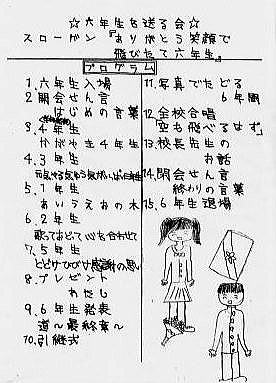 ☆六年生を送る会☆
スローガン『ありがとう笑顔で
飛びたて六年生』
プログラム
1.六年生入場
2.開会せん言
はじめの言葉
3.4年生
かがやき4年生
4.3年生
5.1年生
あいうえおの木
6.2年生
歌っておどって心を合わせて
7.5年生
とどけひびけ感謝の思い
8.プレゼント
わたし
9.6年生発表
道〜最終章〜
10.引継式
11.写真でたどる
6年間
12.全校合唱
"空も飛べるはず"
13.校長先生の
お話
14.閉会せん言
終わりの言葉
15.6年生退場